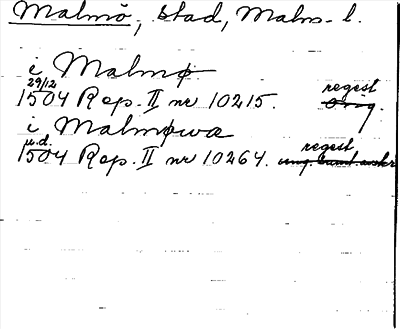 Malmö, stad, Malm. l.
i Malmø
29/12
regest
1504 Rep. II nr 10215. Orig.
i Malmøwæ
u.d.
regest
1504 Rep. II nr 10264.